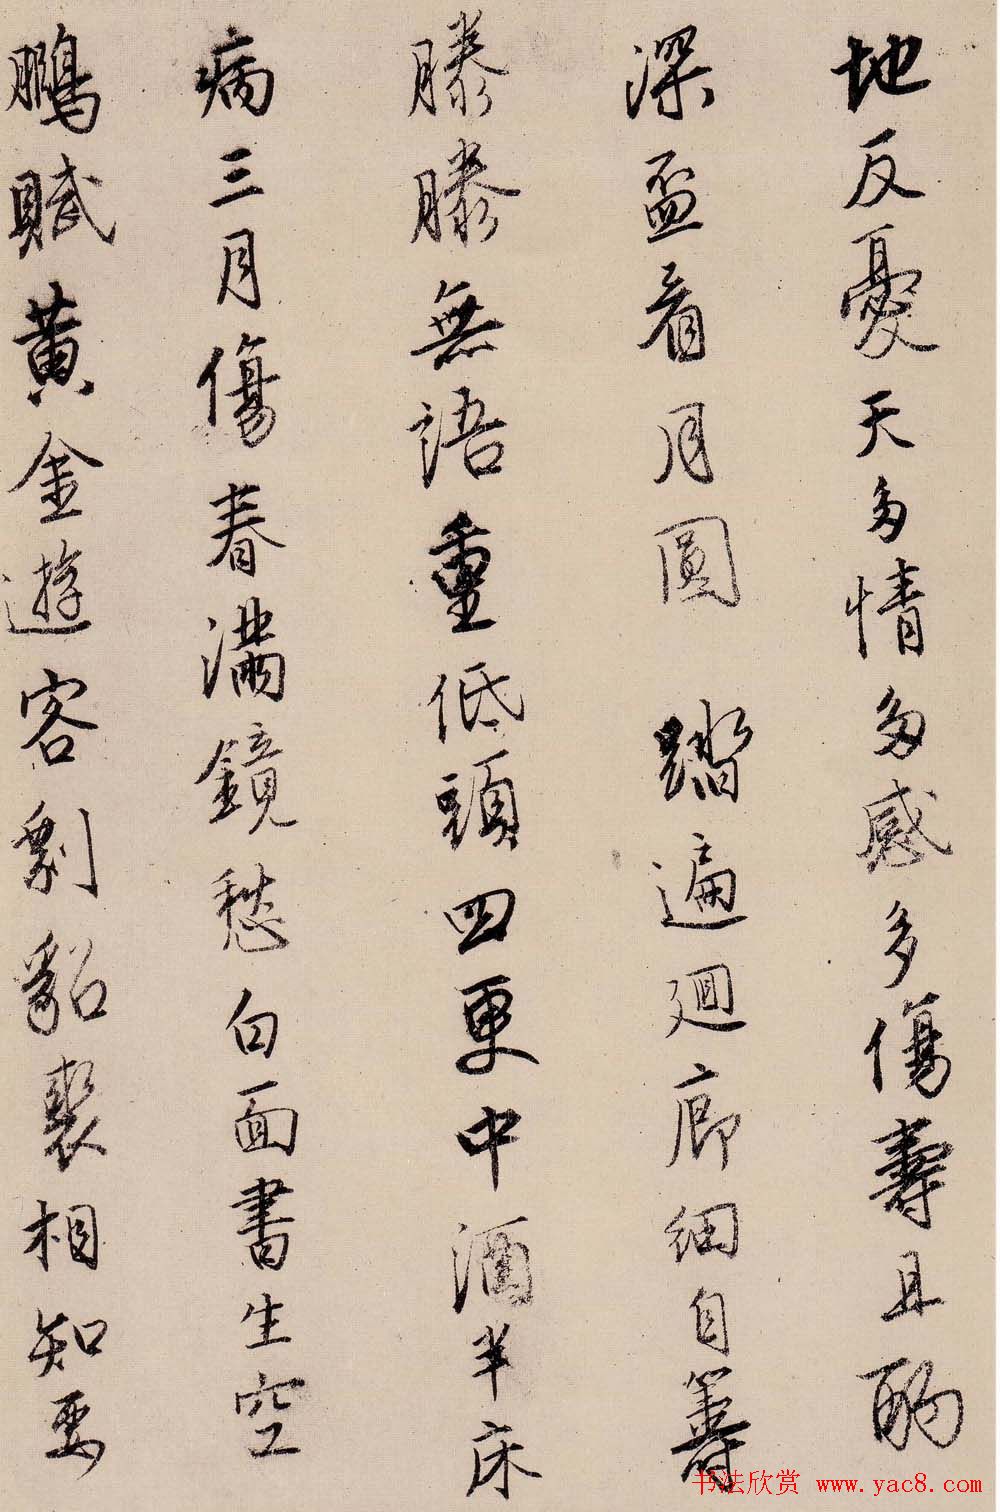 地反憂天多情多感多傷壽且酌
深盃看月圓　踏遍迴廊細自籌
騰騰無語重低頭四更中酒半床
病三月傷春滿鏡愁白面書生空
鵩賦黃金遊客剩貂裘相知要
书法欣赏 www.yac8.com